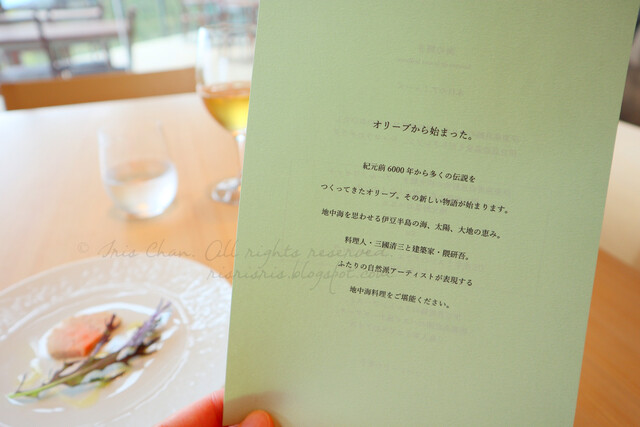 オリーブから始まった。
紀元前6000年から多くの伝説を
つくってきたオリーブ、その新しい物語が始まります。
地中海を思わせる伊豆半島の海、太陽、大地の恵み。
料理人・三國清三と建築家・隈研吾。
ふたりの自然派アーティストが表現する
地中海料理をご堪能ください。
© Iris Chan. All rights reserved.
irisiris.blogspot.com